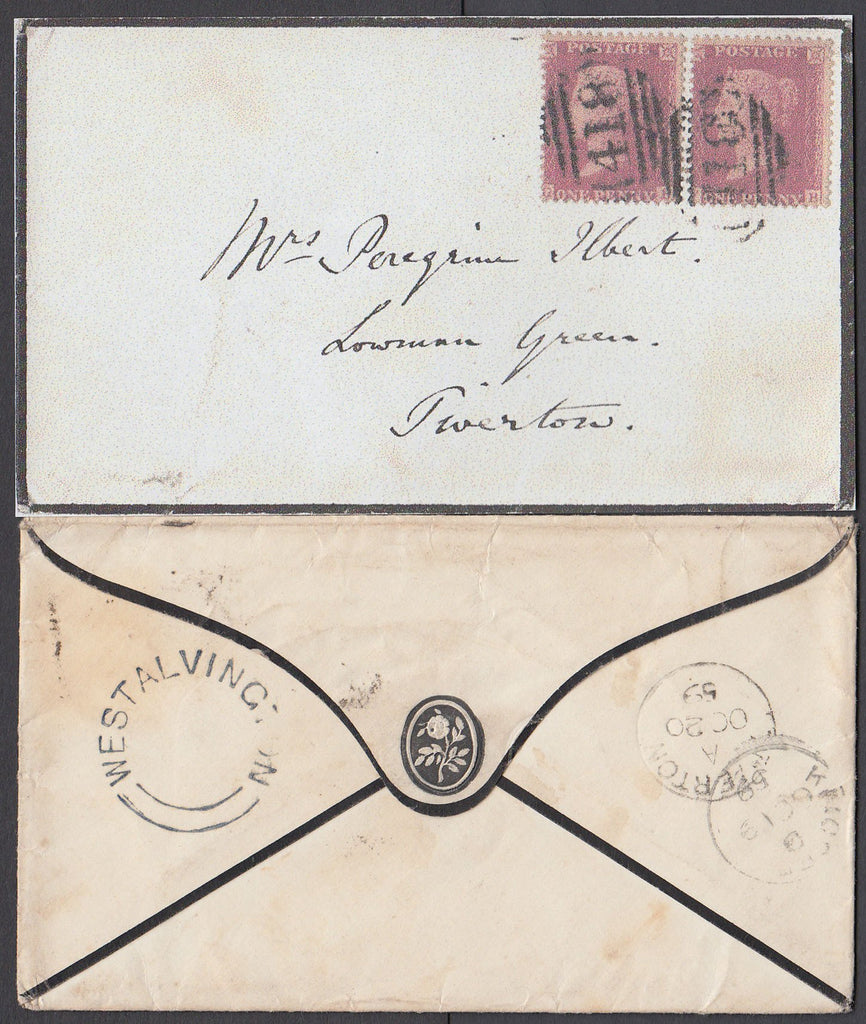 POSTAGE POSTAGE
418 418
ONE PENNY ONE PENNY
Mrs Peregrine Ilbert.
Lowman Green.
Tiverton.
WESTALVINGTON
TIVERTON
A
OC 20
59
OC 19
59